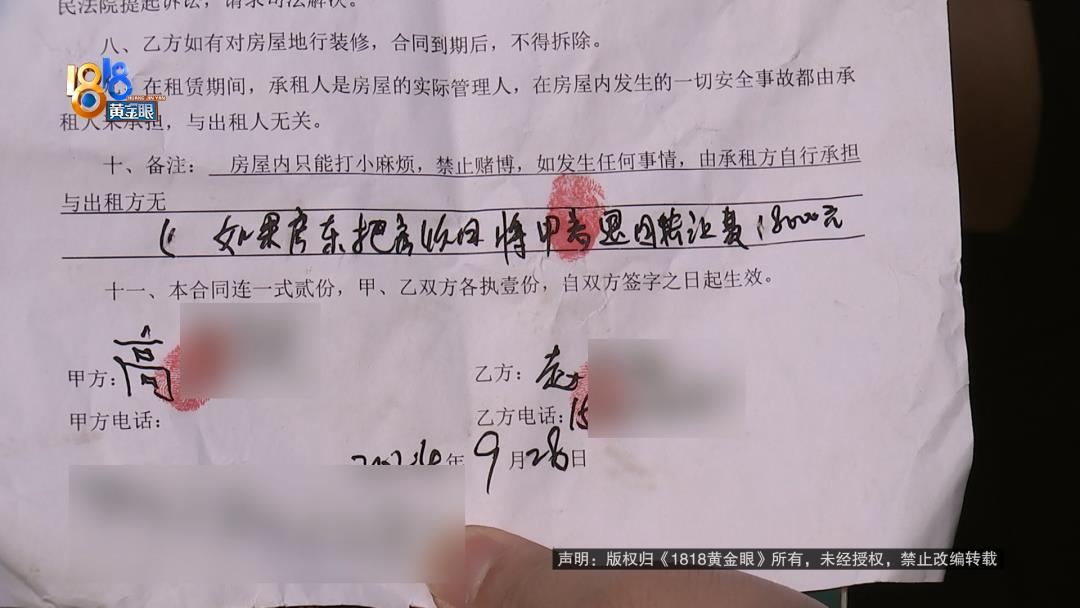 民法院提起诉讼，请求司法解决。
八、乙方如有对房屋地行装修，合同到期后，不得拆除。
1818
黄金眼
在租赁期间，承租人是房屋的实际管理人，在房屋内发生的一切安全事故都由承
租人来承担，与出租人无关。
十、备注： 房屋内只能打小麻烦，禁止赌博，如发生任何事情，由承租方自行承担
与出租方无
如果房东把房收回将甲方退回转让费18000元
十一、本合同连一式贰份，甲、乙双方各执壹份，自双方签字之日起生效。
甲方：高
乙方：赵
甲方电话：
乙方电话：15
年9月28日
声明：版权归《1818黄金眼》所有，未经授权，禁止改编转载